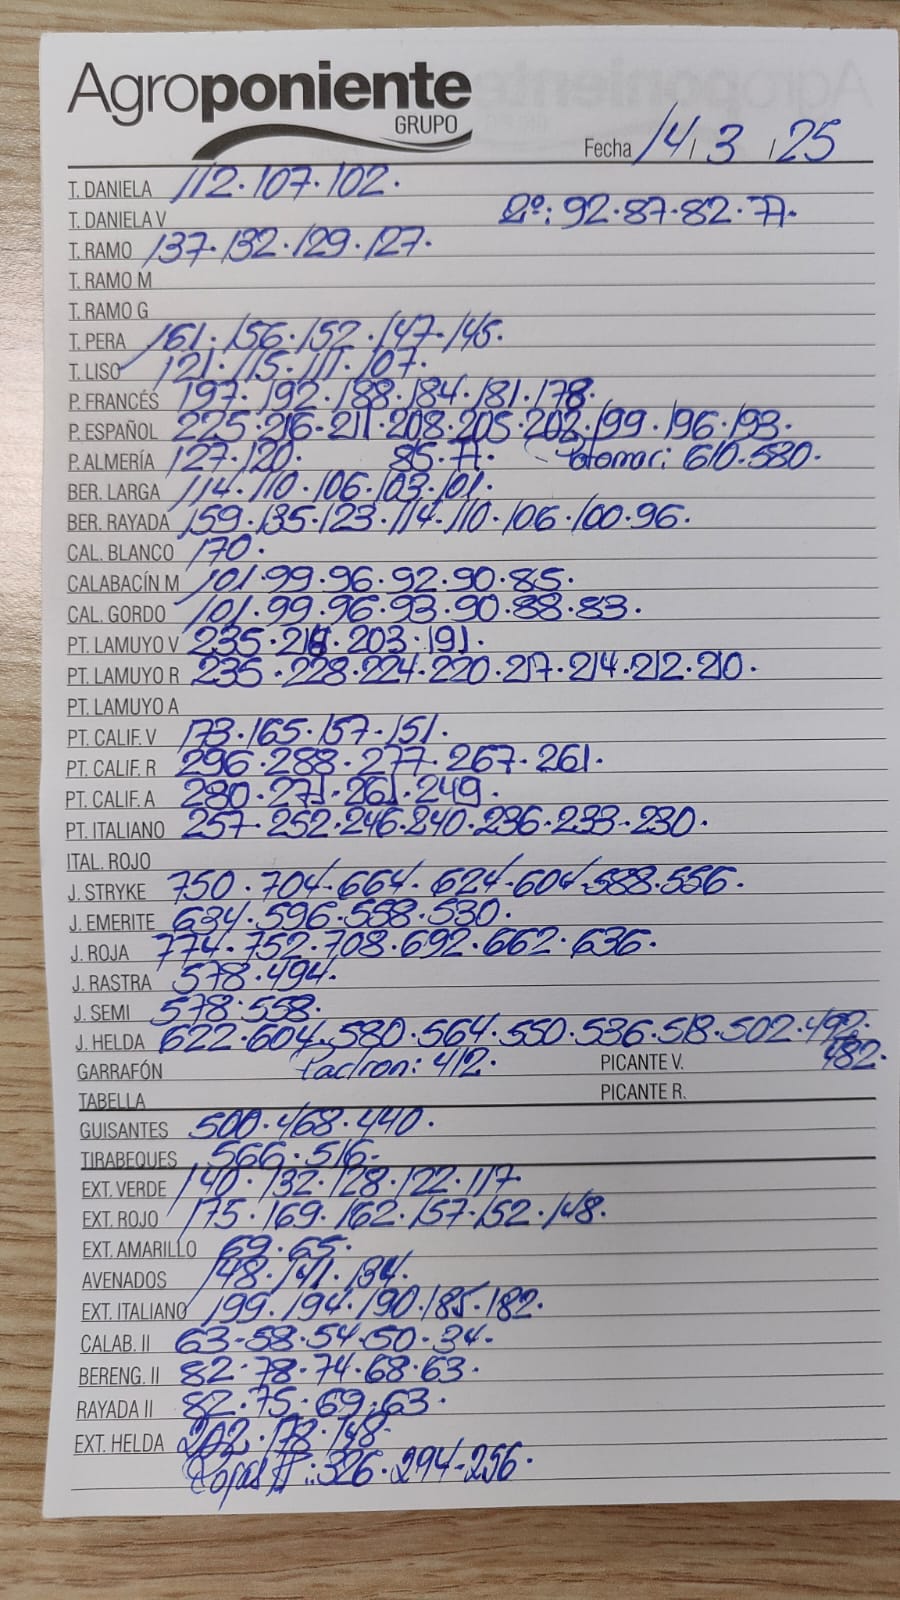 Agroponiente
GRUPO
Fecha 14/3/25
T. DANIELA 112·107·102·
T. DANIELA V 2º: 92·87·82·77·
T. RAMO 137·132·129·127·
T. RAMO M
T. RAMO G
T. PERA 161·156·152·147·145·
T. LISO 121·115·111·107·
P. FRANCÉS 197·192·188·184·181·178·
P. ESPAÑOL 225·216·211·208·205·202·199·196·193·
P. ALMERÍA 127·120· 85·77· 610·580·
BER. LARGA 114·110·106·103·101·
BER. RAYADA 159·135·123·114·110·106·100·96·
CAL. BLANCO 170·
CALABACÍN M 101·99·96·92·90·85·
CAL. GORDO 101·99·96·93·90·88·83·
PT. LAMUYO V 235· 203·191·
PT. LAMUYO R 235·228·224·220·217·214·212·210·
PT. LAMUYO A
PT. CALIF. V 173·165·157·151·
PT. CALIF. R 296·288·277·267·261·
PT. CALIF. A 280·271·261·249·
PT. ITALIANO 257·252·246·240·236·233·230·
ITAL. ROJO
J. STRYKE 750·704·664·624·604·588·556·
J. EMERITE 634·596·558·530·
J. ROJA 774·752·708·692·662·636·
J. RASTRA 578·494·
J. SEMI 578·558·
J. HELDA 622·604·580·564·550·536·518·502·492·
GARRAFÓN Padron: 412· PICANTE V. 482·
TABELLA PICANTE R.
GUISANTES 500·468·440·
TIRABEQUES 566·516·
EXT. VERDE 140·132·128·122·117
EXT. ROJO 175·169·162·157·152·148·
EXT. AMARILLO 69·65·
AVENADOS 148·141·134·
EXT. ITALIANO 199·194·190·185·182·
CALAB. II 63·58·54·50·34·
BERENG. II 82·78·74·68·63·
RAYADA II 82·75·69·63·
EXT. HELDA 202·178·148·
Rojas II: 326·294·256·